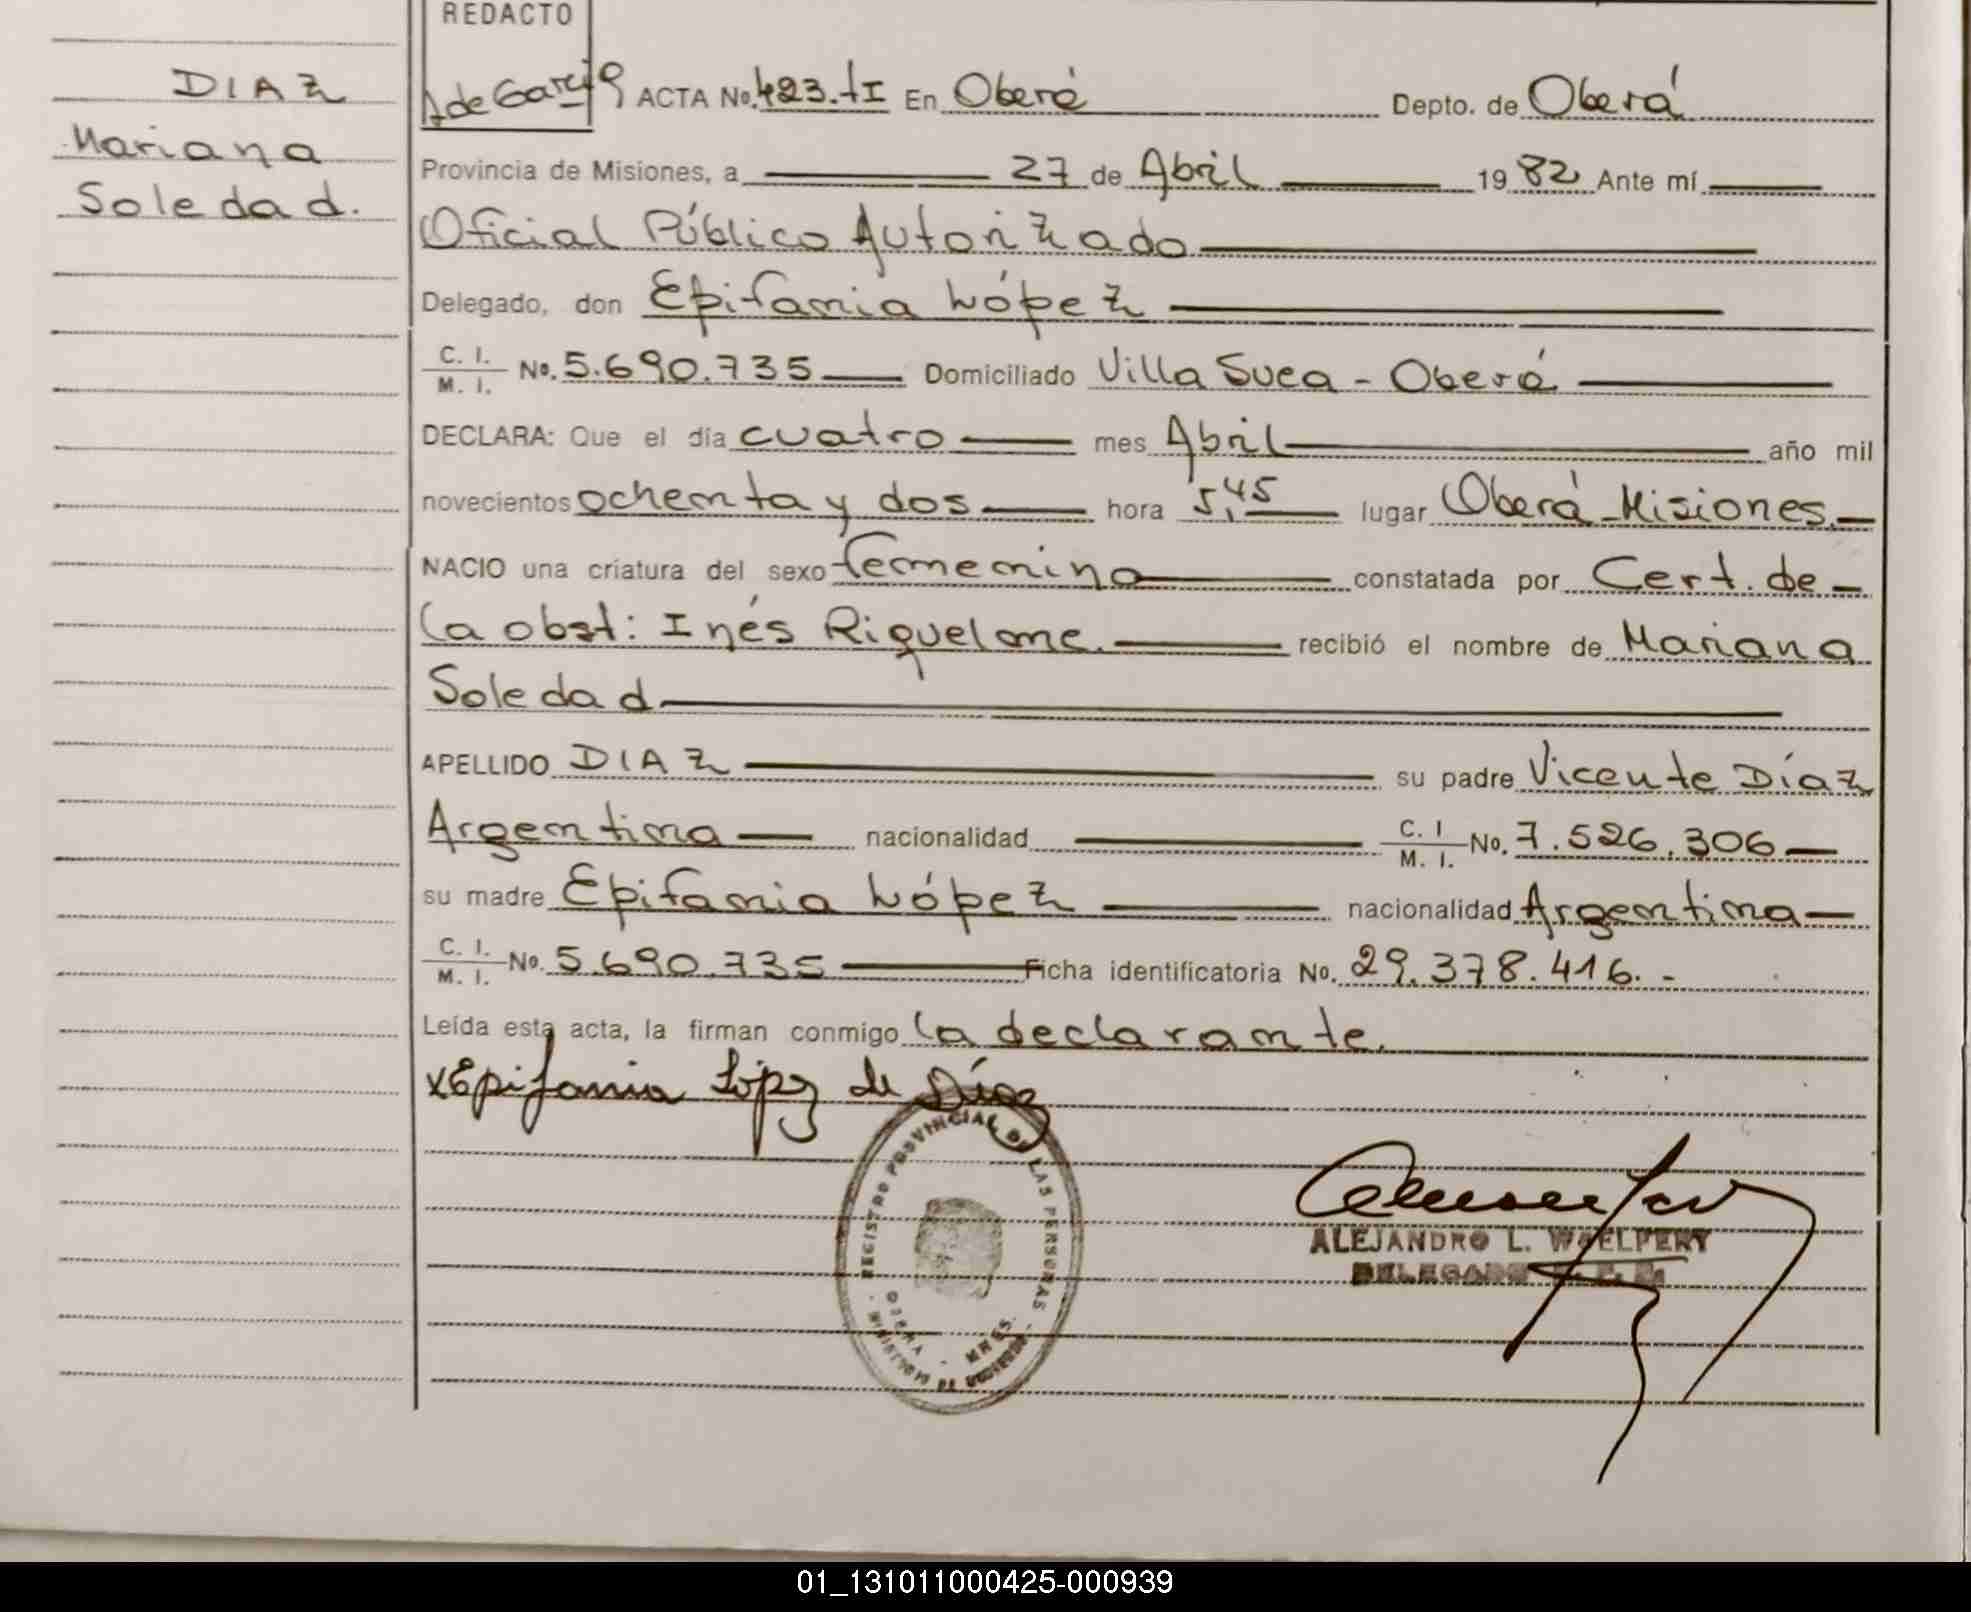 REDACTO
DIAZ
Mariana
Soledad.
A de García ACTA No. 423.tI En Oberá Depto. de Oberá
Provincia de Misiones, a 27 de Abril 1982 Ante mí
Oficial Público Autorizado
Delegado, don Epifania López
C. I.
M. I. No. 5.690.735 Domiciliado Villa Svea - Oberá
DECLARA: Que el día cuatro mes Abril año mil
novecientos ochenta y dos hora 5,45 lugar Oberá - Misiones.
NACIO una criatura del sexo femenino constatada por Cert. de
la obst: Inés Riquelme. recibió el nombre de Mariana
Soledad
APELLIDO DIAZ su padre Vicente Díaz
Argentina nacionalidad C. I
M. I. No. 7.526.306
su madre Epifania López nacionalidad Argentina
C. I.
M. I. No. 5.690.735 Ficha identificatoria No. 29.378.416.-
Leída esta acta, la firman conmigo la declarante.
x Epifania López de Díaz
REGISTRO PROVINCIAL DE LAS PERSONAS
OBERA - MNES.
MINISTERIO DE GOBIERNO
ALEJANDRO L. WOELFERT
DELEGADO
01_131011000425-000939